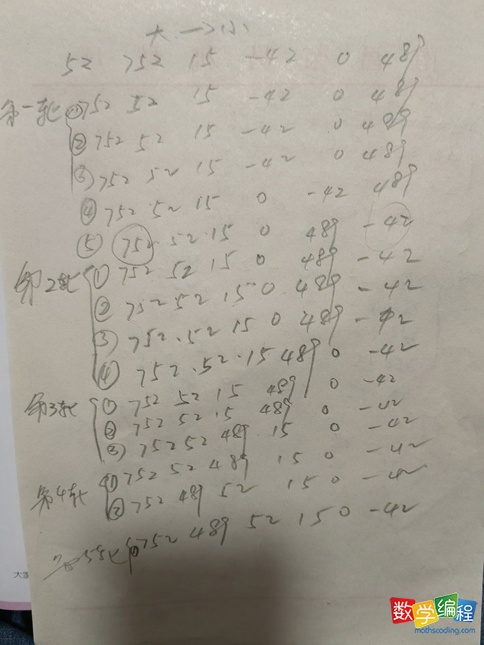 大→小
52 752 15 -42 0 489
第一轮 ① 752 52 15 -42 0 489
② 752 52 15 -42 0 489
③ 752 52 15 -42 0 489
④ 752 52 15 0 -42 489
⑤ 752 52 15 0 489 -42
第2轮 ① 752 52 15 0 489 -42
② 752 52 15 0 489 -42
③ 752 52 15 0 489 -42
④ 752 52 15 489 0 -42
第3轮 ① 752 52 15 489 0 -42
② 752 52 15 489 0 -42
③ 752 52 489 15 0 -42
第4轮 ① 752 52 489 15 0 -42
② 752 489 52 15 0 -42
752 489 52 15 0 -42
数学编程
mathscoding.com